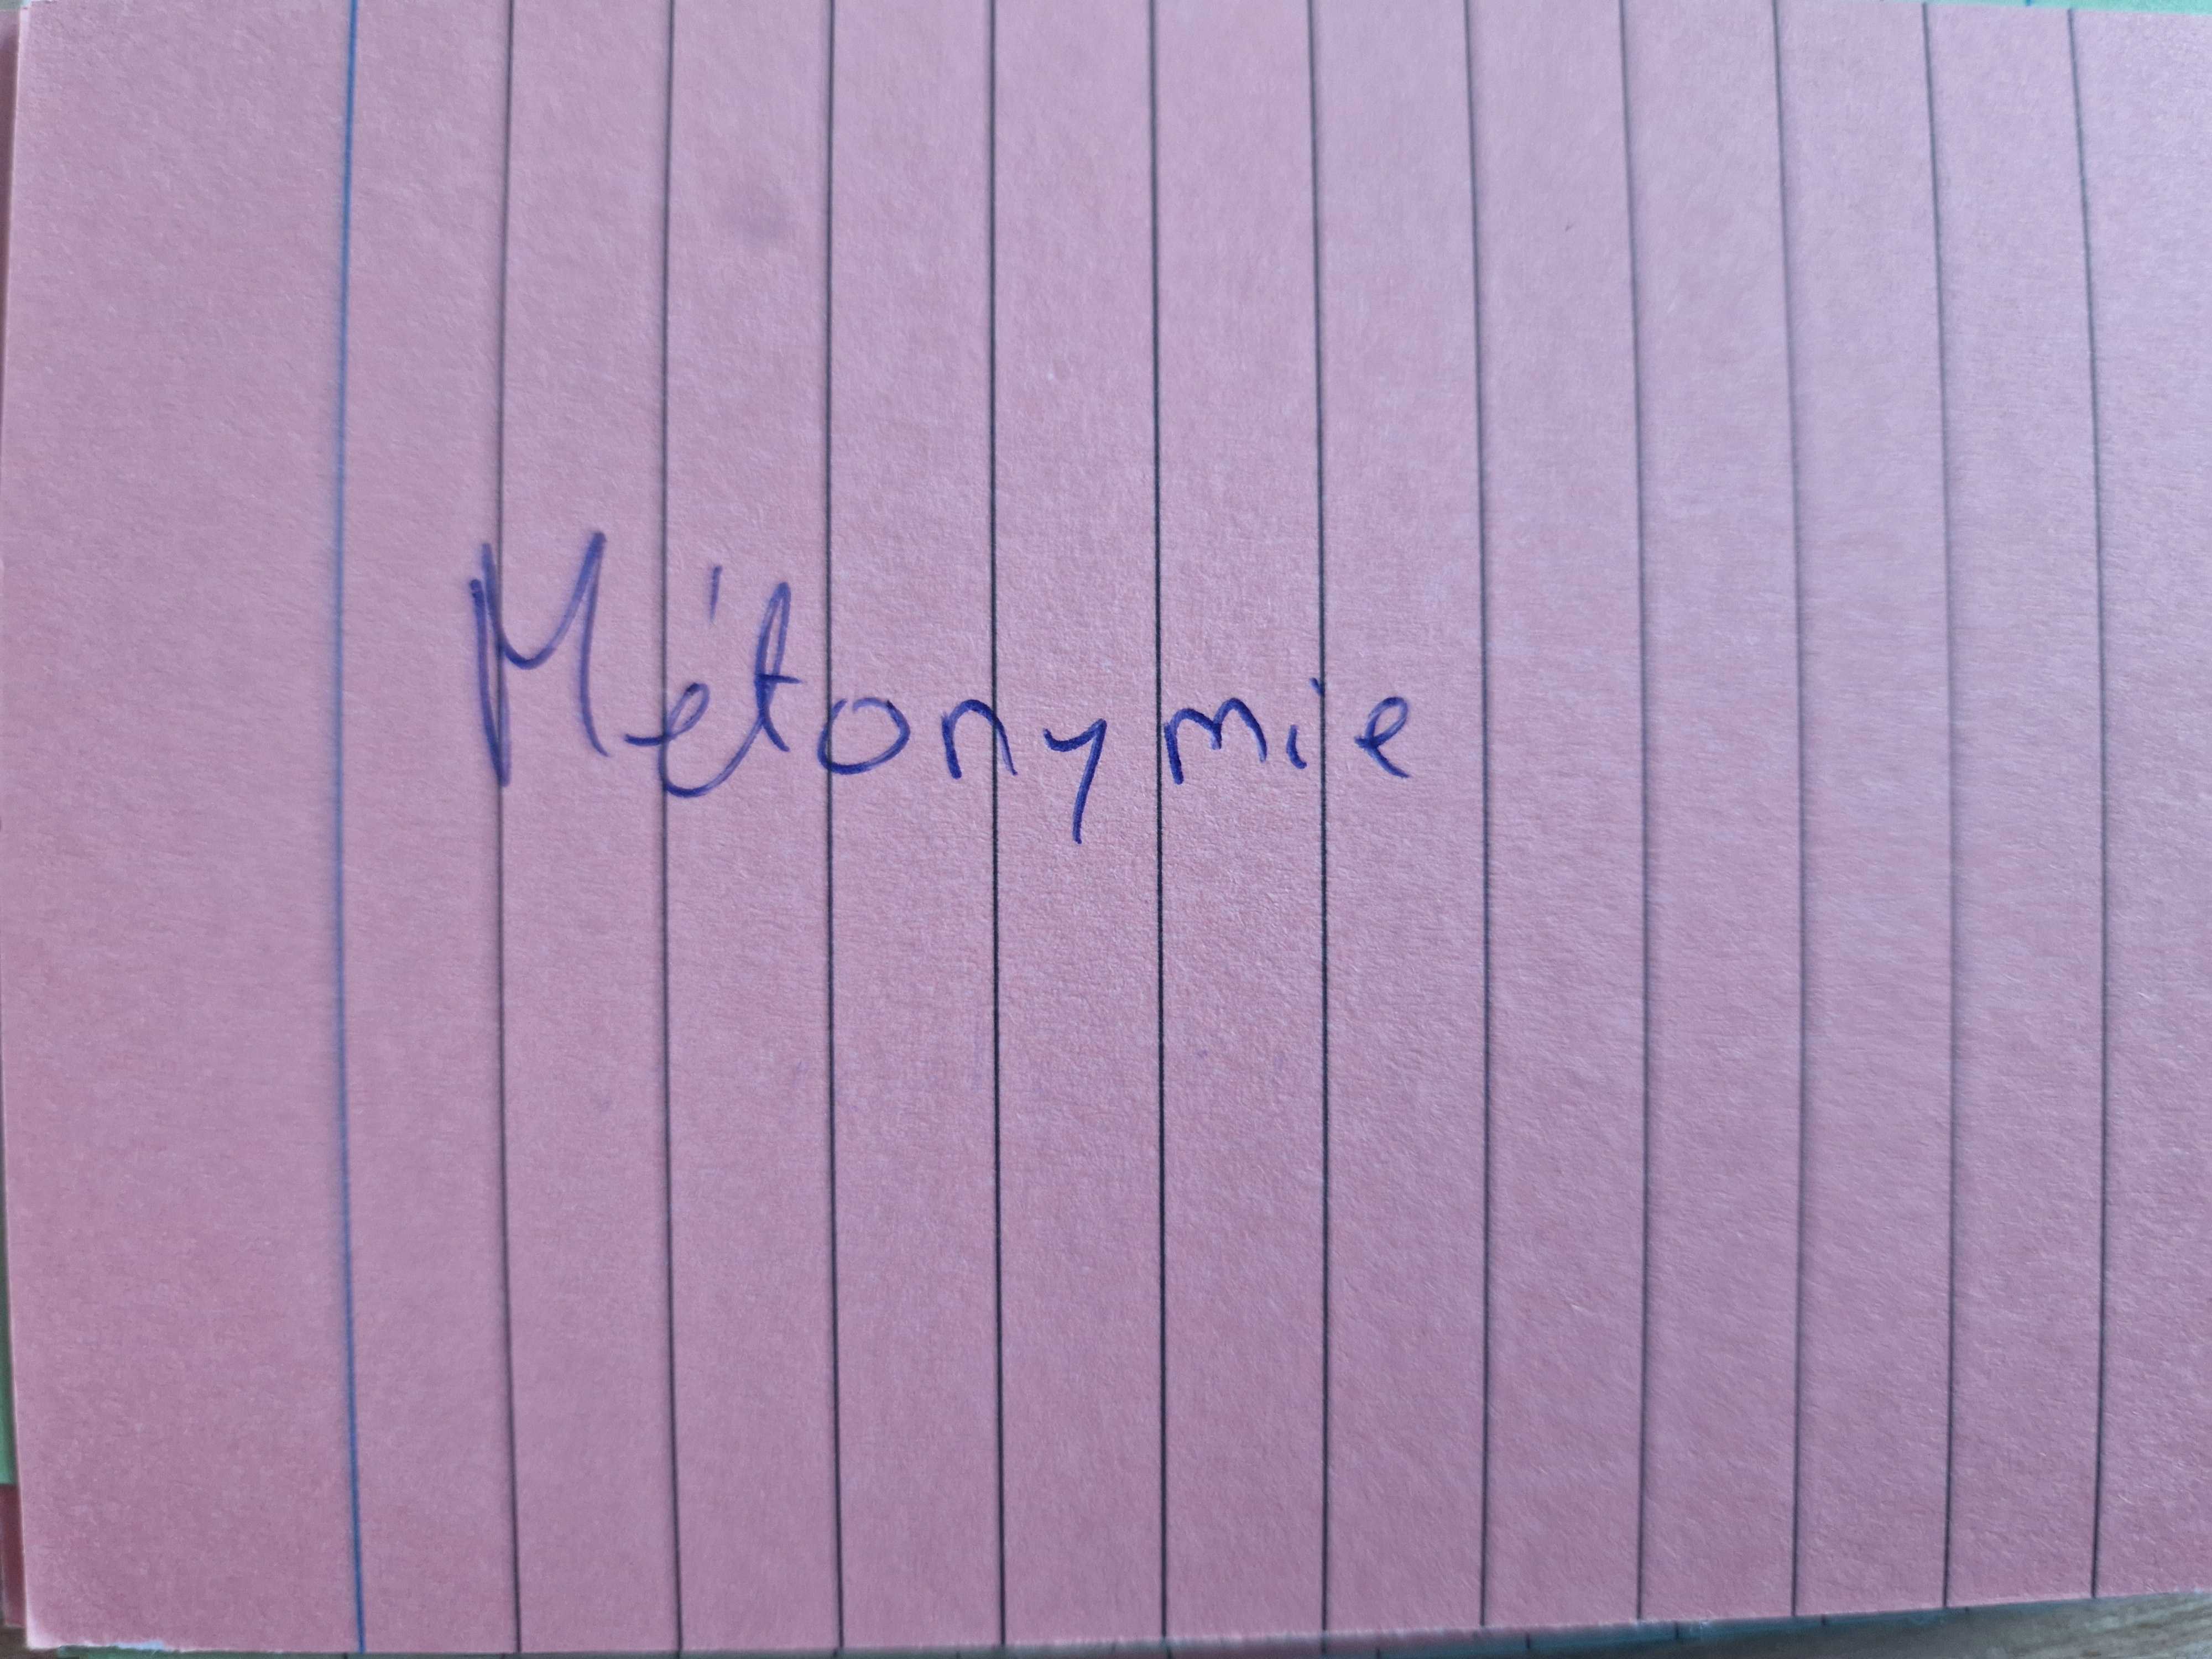 Métonymie